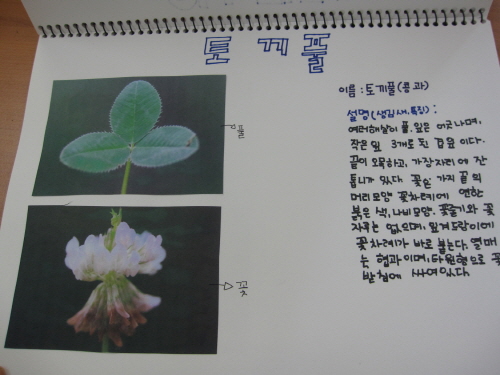 토끼풀
이름 : 토끼풀(콩과)
설명(생김새, 특징) :
여러해살이 풀. 잎은 어긋나며,
작은 잎 3개로 된 겹잎 이다.
끝이 오목하고, 가장자리에 잔
톱니가 있다. 꽃은 가지 끝의
머리모양 꽃차례에 연한
붉은 색, 나비모양. 꽃줄기와 꽃
자루는 없으며, 잎겨드랑이에
꽃차례가 바로 붙는다. 열매
는 협과이며, 타원형으로 꽃
받침에 싸여있다.
풀
꽃